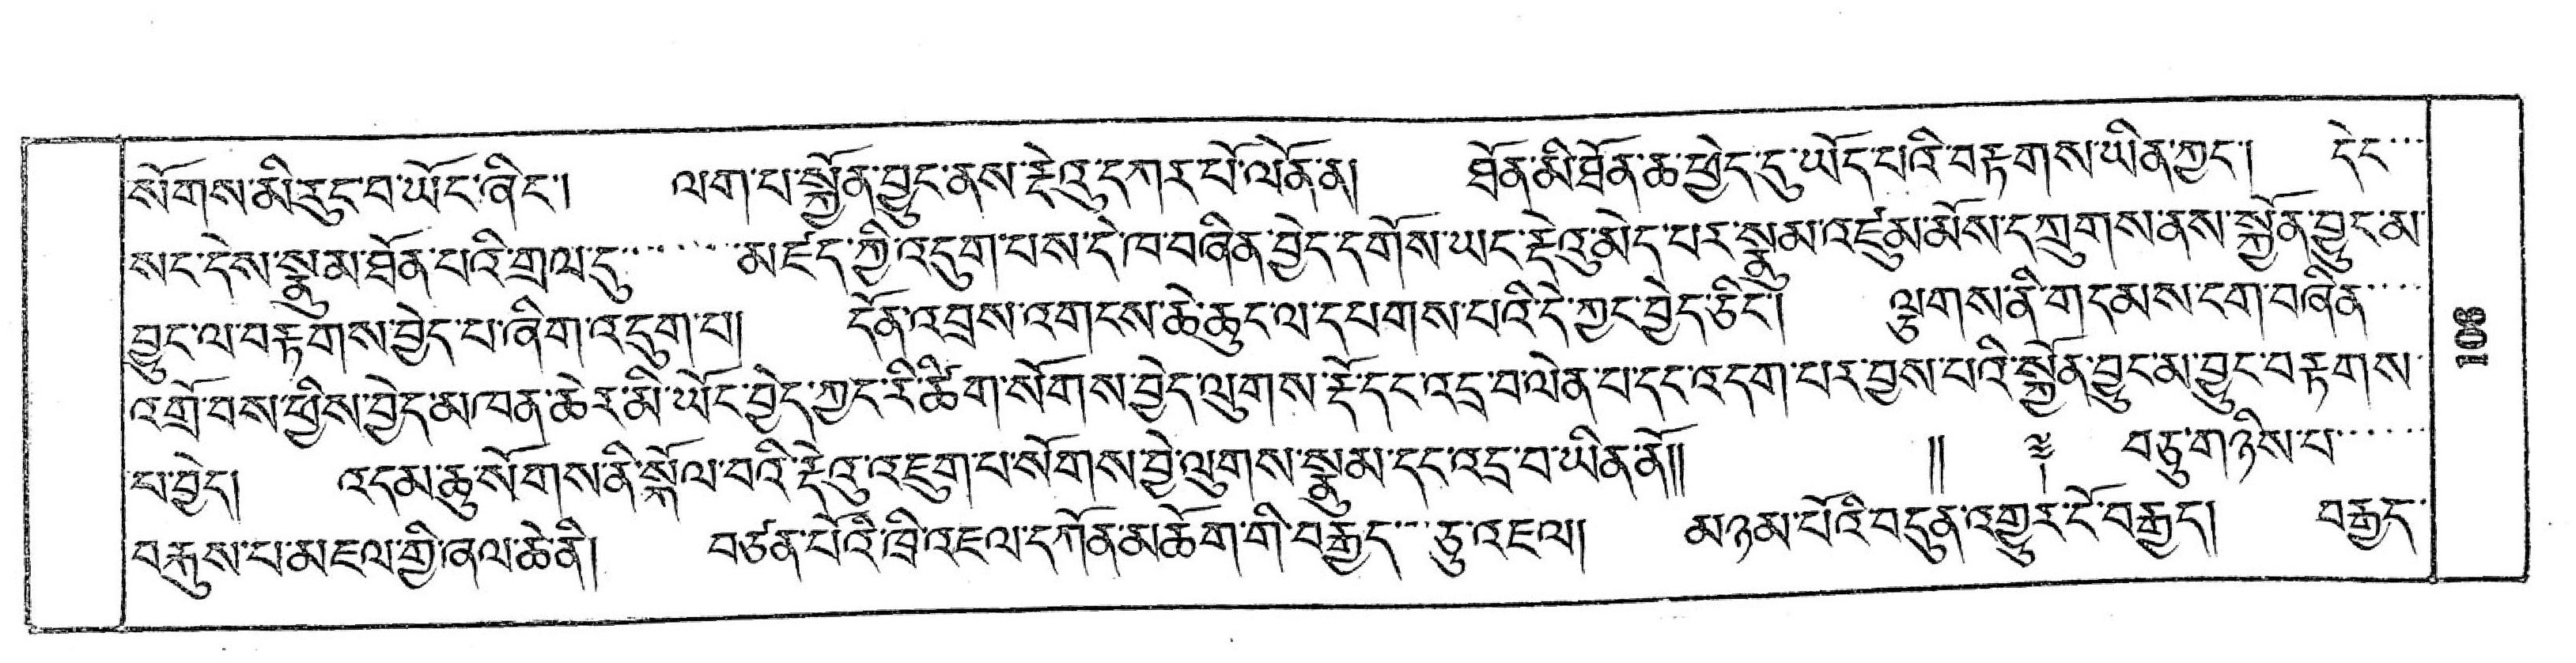 སོགས་མི་རུང་བ་ཡོང་ཞིང་། ལག་པ་སྐྱོན་བྱུང་ནས་རྡེའུ་དཀར་པོ་ལེན་ན། ཐོན་མི་ཐོན་ཆ་ཕྱེད་དུ་ཡོད་པའི་བརྟགས་ཡིན་ཀྱང་། དེང་...
སང་དེས་སྣུམ་ཐོན་པའི་གྲལ་དུ་......མཛད་ཀྱི་འདུག་པས་དེ་ཁ་བཞིན་བྱེད་དགོས་ཡང་རྡེའུ་མེད་པར་སྣུམ་འཛུམ་མོས་དཀྲུགས་ནས་སྐྱོན་བྱུང་མ་
བྱུང་ལ་བརྟགས་བྱེད་པ་ཞིག་འདུག་པ། དོན་འབྲས་འགངས་ཆེ་ཆུང་ལ་དཔགས་པའི་དེ་ཀྱང་བྱེད་ཅིང་། ལྕུགས་ནི་གདམས་ངག་བཞིན་....
འགྲོ་བས་ཕྱིས་བྱེད་མཁན་ཆེར་མི་ཡོང་བྱེད་ཀྱང་རི་ཚིག་སོགས་བྱེད་ལུགས་རྡོ་དང་འདྲ་བ་ལེན་པ་དང་འདག་པར་བྱས་པའི་སྐྱོན་བྱུང་མ་བྱུང་བརྟགས་
པ་བྱེད། འདམ་ཆུ་སོགས་ནི་སྐོལ་བའི་རྡེའུ་འཇུག་པ་སོགས་བྱེ་ལུགས་སྣུམ་དང་འདྲ་བ་ཡིན་ནོ།། །། ༈ བཅུ་གཉིས་པ་......
བརྐུས་པ་མཇལ་གྱི་ཞལ་ཆེ་ནི། བཙན་པོའི་ཁྲི་འཇལ་དཀོན་མཆོག་གི་བརྒྱད་..ཅུ་འཇལ། མཉམ་པོའི་བདུན་འགྱུར་ངོ་བརྒྱད། བརྒྱད་
108